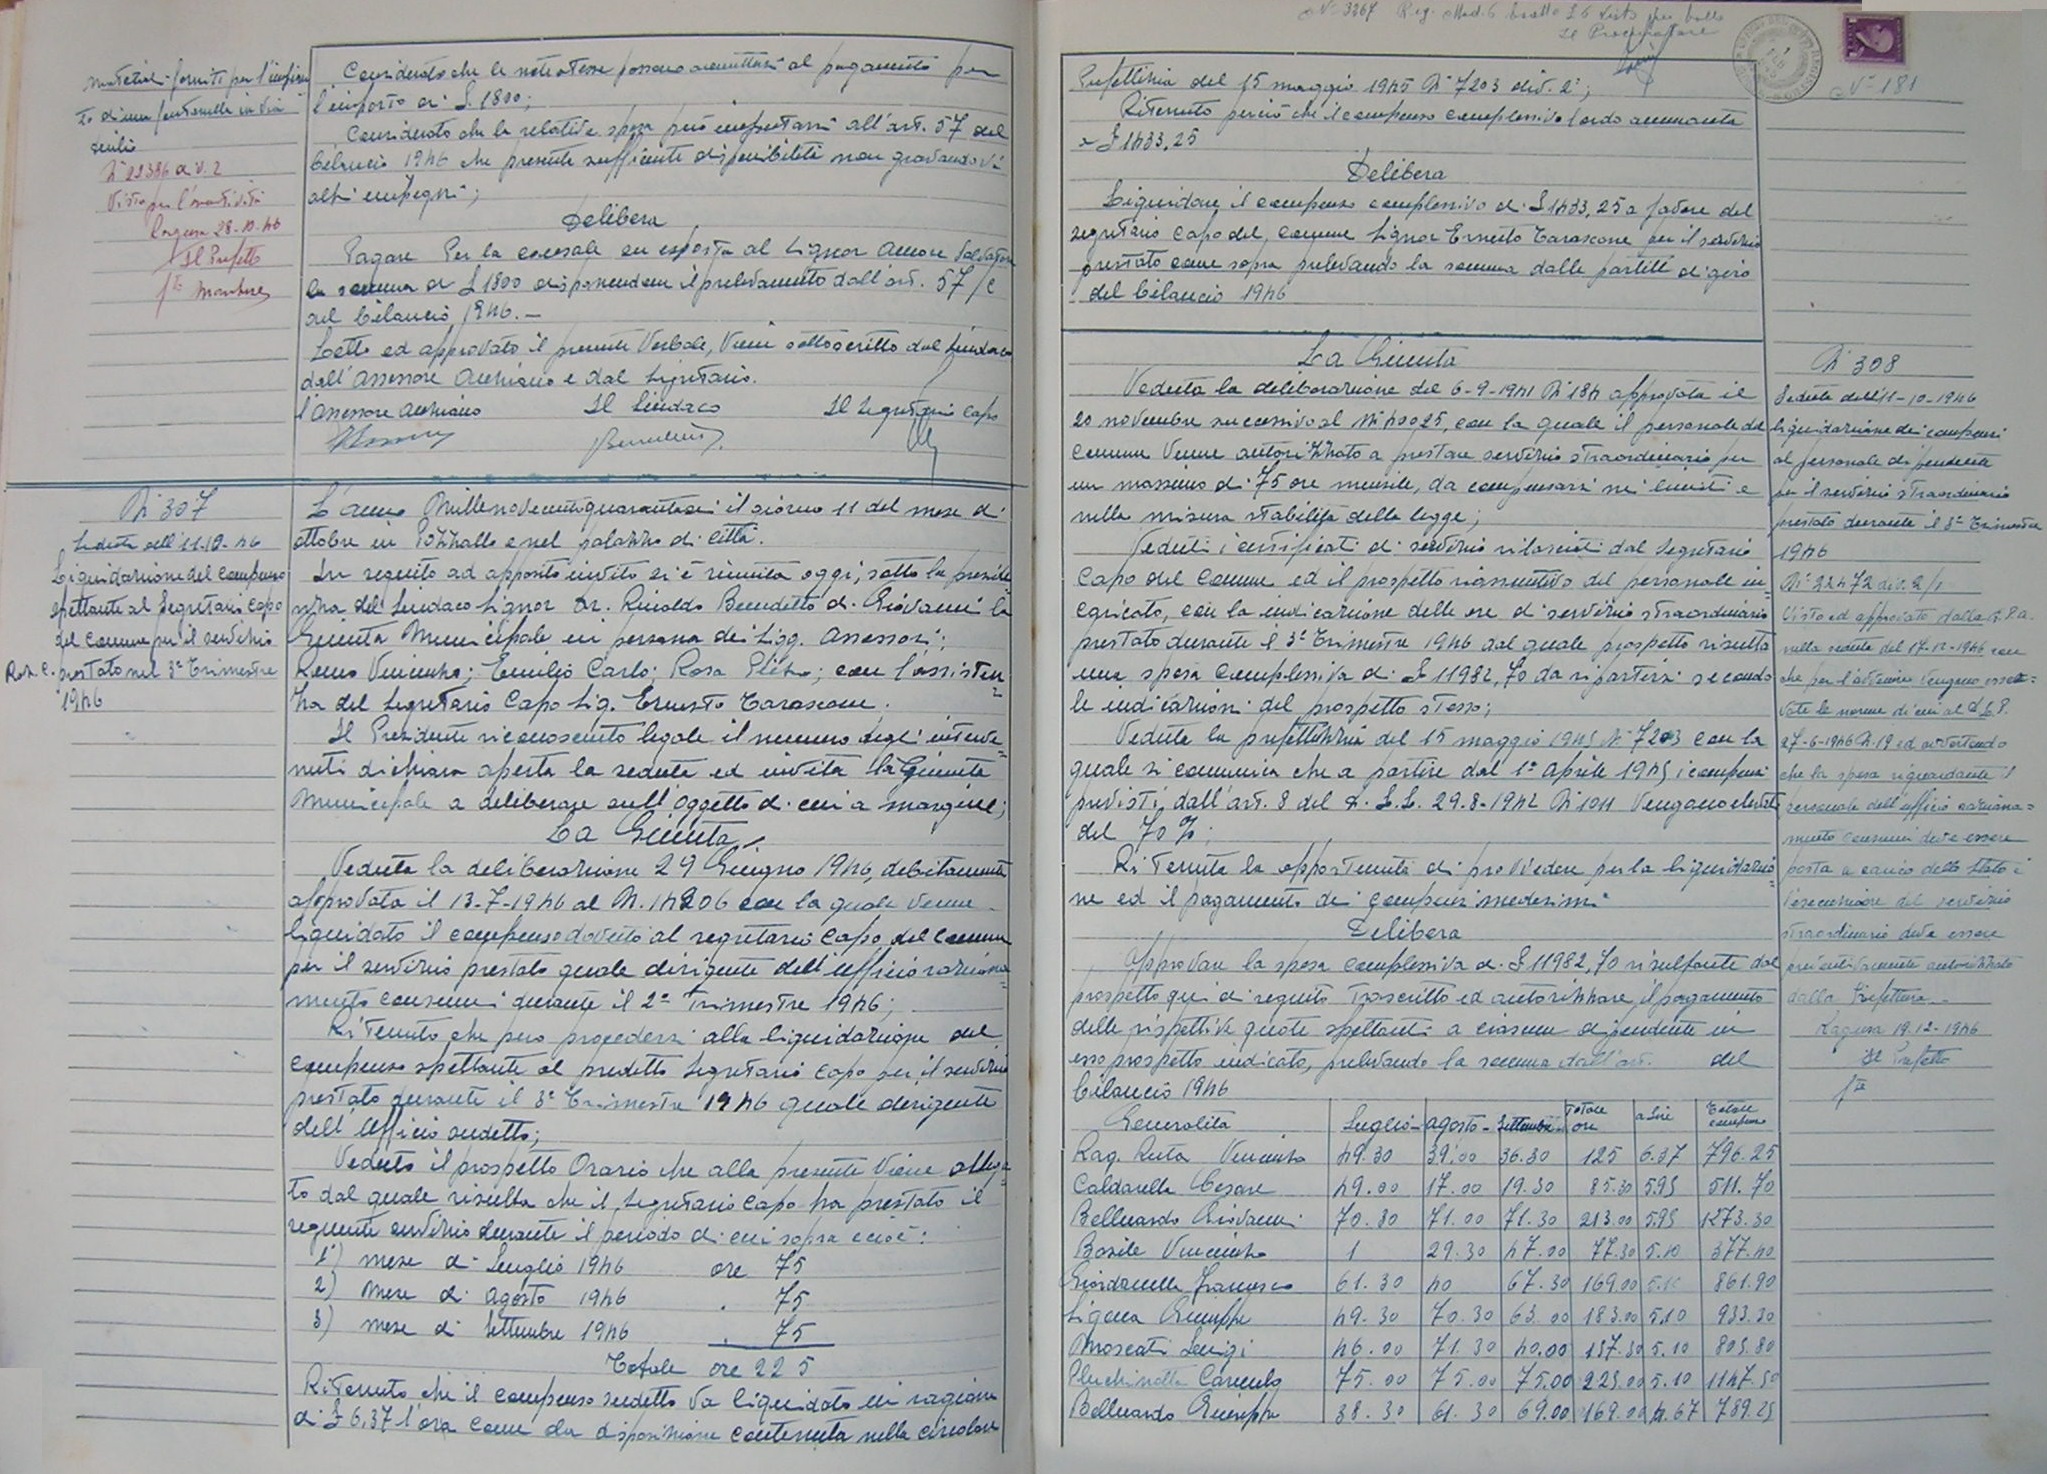 materiali forniti per l'impian
to di una fontanella in via
Giulio
N° 22386 div. 2
Visto per l'esecutività
Ragusa 28-10-46
Il Prefetto
fto
Considerato che le note stesse possono ammettersi al pagamento per
l'importo di £. 1800;
Considerato che la relativa spesa può imputarsi all'art. 57 del
bilancio 1946 che presenta sufficiente disponibilità non gravandovi
altri impegni;
Delibera
Pagare per la causale su esposta al Signor Amore Salvatore
la somma di £ 1800 disponendone il prelevamento dall'art. 57/c
del bilancio 1946.—
Letto ed approvato il presente Verbale, viene sottoscritto dal Sindaco
dall'Assessore Anziano e dal Segretario.
l'Assessore Anziano Il Sindaco Il Segretario Capo
N° 307
Seduta dell'11.10.46
Liquidazione del compenso
spettante al Segretario Capo
del comune per il servizio
prestato nel 3° Trimestre
1946
L'anno Millenovecentoquarantasei il giorno 11 del mese di
ottobre in Pozzallo e nel palazzo di città.
In seguito ad apposito invito si è riunita oggi, sotto la preside
nza del Sindaco Signor Dr. Rinaldo Benedetto di Giovanni la
Giunta Municipale in persona dei Sigg. Assessori:
Vincenzo; Emilio Carlo; Rosa; con l'assisten
za del Segretario Capo Sig. Ernesto Tarascone.
Il Presidente riconosciuto legale il numero degli interve
nuti dichiara aperta la seduta ed invita la Giunta
Municipale a deliberare sull'oggetto di cui a margine;
La Giunta
Veduta la deliberazione 29 Giugno 1946, debitamente
approvata il 13-7-1946 al N. 14206 con la quale venne
liquidato il compenso dovuto al segretario capo del comune
per il servizio prestato quale dirigente dell'ufficio raziona
mento consumi durante il 2° Trimestre 1946;
Ritenuto che può procedersi alla liquidazione del
compenso spettante al predetto Segretario capo per il servizio
prestato durante il 3° Trimestre 1946 quale dirigente
dell'Ufficio sudetto;
Veduto il prospetto Orario che alla presente viene allega
to dal quale risulta che il Segretario capo ha prestato il
seguente servizio durante il periodo di cui sopra cioè:
1) mese di Luglio 1946 ore 75
2) mese di Agosto 1946 " 75
3) mese di Settembre 1946 " 75
Totale ore 225
Ritenuto che il compenso sudetto va liquidato in ragione
di £ 6,37 l'ora come da disposizione contenuta nella circolare
N° 3267 Reg. Mod. 6 Visto per bollo
Il Procuratore
N° 181
Prefettizia del 15 maggio 1945 N° 7203 div. 2ª;
Ritenuto perciò che il compenso complessivo lordo ammonta
a £ 1433,25
Delibera
Liquidare il compenso complessivo di £ 1433,25 a favore del
segretario capo del comune Signor Ernesto Tarascone per il servizio
prestato come sopra prelevando la somma dalle partite di giro
del bilancio 1946
La Giunta
Veduta la deliberazione del 6-9-1941 N° 184 approvata il
20 novembre successivo al N° 40025, con la quale il personale del
comune venne autorizzato a prestare servizio straordinario per
un massimo di 75 ore mensile, da compensarsi nei limiti e
nella misura stabilita dalla legge;
Veduti i certificati di servizio rilasciati dal Segretario
Capo del Comune ed il prospetto riassuntivo del personale in
caricato, con la indicazione delle ore di servizio straordinario
prestato durante il 3° Trimestre 1946 dal quale prospetto risulta
una spesa complessiva di £ 11982,70 da ripartirsi secondo
le indicazioni del prospetto stesso;
Veduta la prefettizia del 15 maggio 1945 N° 7203 con la
quale si comunica che a partire dal 1° Aprile 1945 i compensi
previsti dall'art. 8 del D. L. L. 29-8-1942 N° 1011 vengono elevati
del 70%;
Ritenuta la opportunità di provvedere per la liquidazio
ne ed il pagamento dei compensi medesimi
Delibera
Approvare la spesa complessiva di £ 11982,70 risultante dal
prospetto qui di seguito trascritto ed autorizzare il pagamento
delle rispettive quote spettanti a ciascun dipendente in
esso prospetto indicato, prelevando la somma dall'art. del
bilancio 1946
Generalità Luglio Agosto Settembre Totale ore a Lire Totale compenso
Rag. Ruta Vincenzo 49.30 39.00 36.30 125 6.37 796.25
Caldarella Cesare 49.00 17.00 19.30 85.30 5.95 511.70
Belluardo Giovanni 70.30 71.00 71.30 213.00 5.95 1273.30
Basile Vincenzo 1 29.30 47.00 77.30 5.10 377.40
Giordanella Francesco 61.30 40 67.30 169.00 5.10 861.90
Sigona Giuseppe 49.30 70.30 63.00 183.00 5.10 933.30
Moscati Luigi 46.00 71.30 40.00 157.30 5.10 803.80
Pluchinotta Carmelo 75.00 75.00 75.00 225.00 5.10 1147.50
Belluardo Giuseppe 38.30 61.30 69.00 169.00 4.67 789.25
N° 308
Seduta dell'11-10-1946
liquidazione dei compensi
al personale dipendente
per il servizio straordinario
prestato durante il 3° Trimestre
1946
N° 22472 div. 2/1
Visto ed approvato dalla G.P.A.
nella seduta del 17-12-1946 con
che per l'avvenire vengano osser=
vate le norme di cui al D.L.P.
27-6-1946 N. 19 ed avvertendo
che la spesa riguardante il
personale dell'ufficio raziona=
mento consumi deve essere
posta a carico dello Stato e
l'esecuzione del servizio
straordinario deve essere
preventivamente autorizzato
dalla Prefettura.
Ragusa 19.12-1946
Il Prefetto
fto